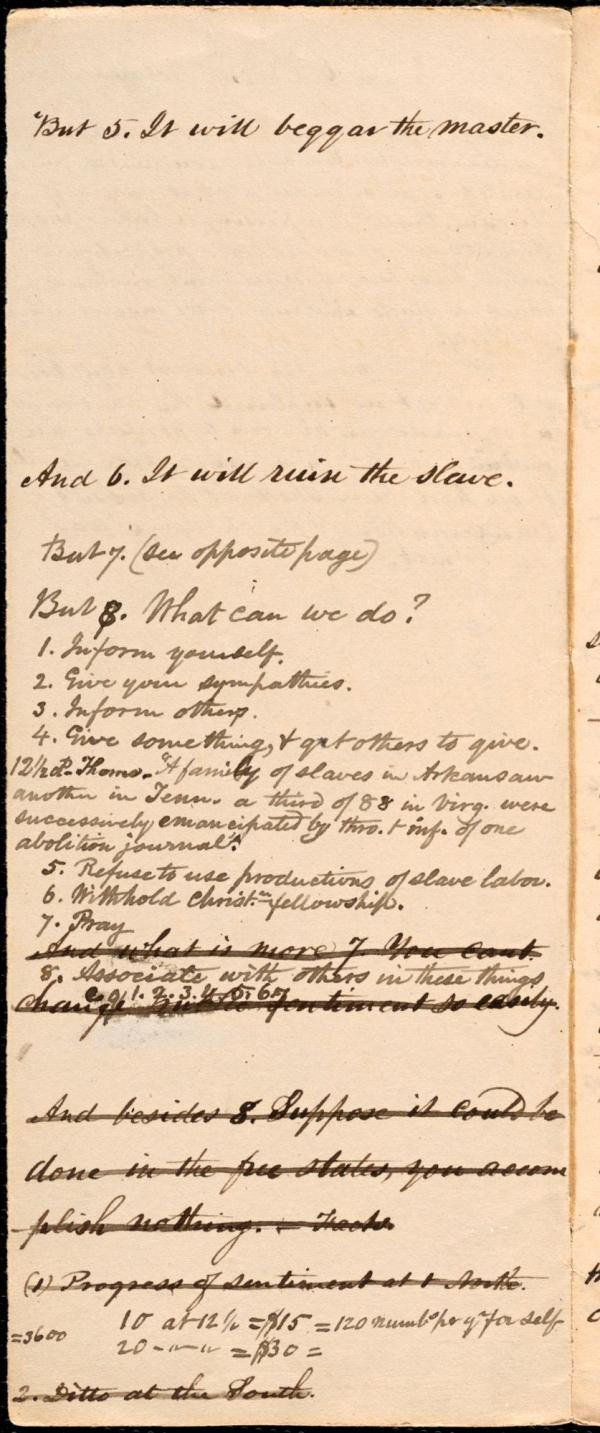 But 5. It will beggar the master.
And 6. It will ruin the slave.
But 7. (see opposite page)
But 8. What can we do?
1. Inform yourself.
2. Give your sympathies.
3. Inform others.
4. Give something, & get others to give.
12½ Thoms. "A family of slaves in Arkansaw
another in Tenn. a third of 88 in Virg. were
successively emancipated by thro. & inf. of one
abolition journal".
5. Refuse to use productions of slave labor.
6. Withhold Christ.n fellowship.
7. Pray
And what is more 7. You cant
8. Associate with others in these things
e.g. 1. 2. 3. 4. 5. 6. 7
change public sentiment so easily.
And besides 8. Suppose it could be
done in the free states, you accom
plish nothing. - Facts
(1) Progress of sentiment at t North.
10 at 12½ = $15 = 120 numb.s per yr for self
=3600 20 - " - " = $30 =
2. Ditto at the South.